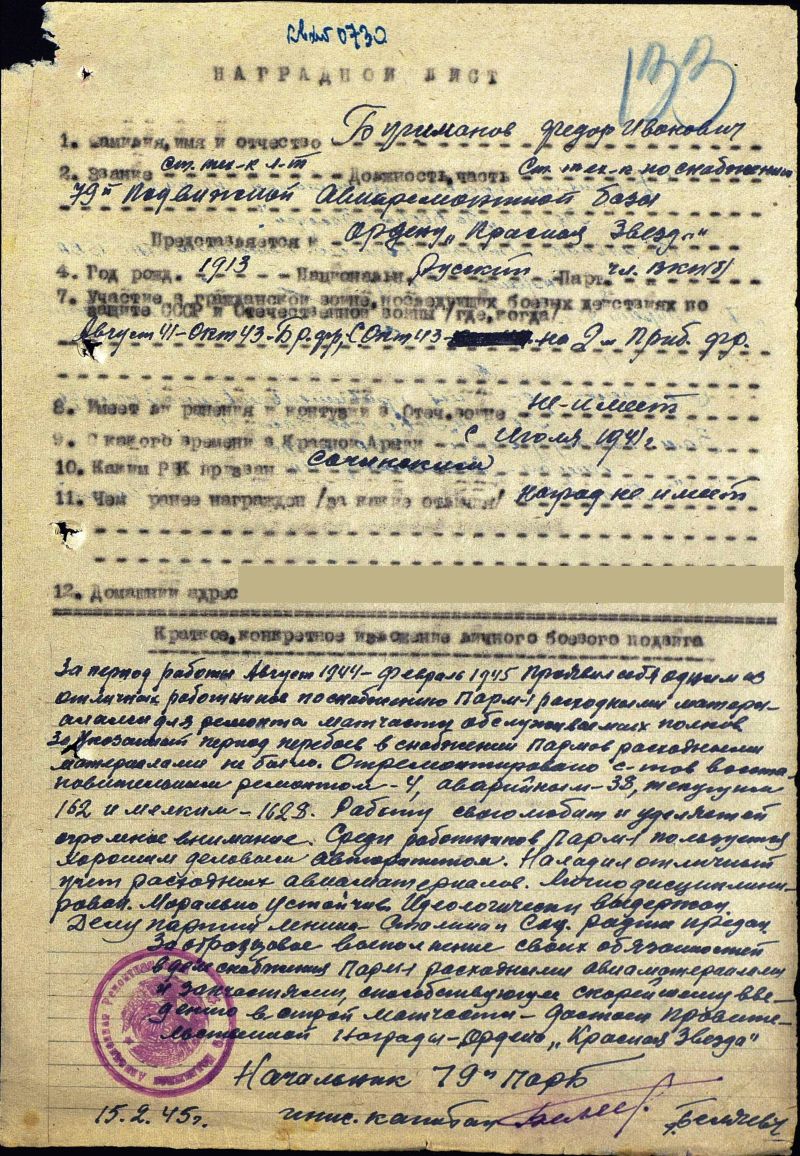 вх№ 0730
133
НАГРАДНОЙ ЛИСТ
1. Фамилия, имя и отчество Бугиманов Федор Иванович
2. Звание Ст. тех-к л-т Должность, часть Ст. тех-к по снабжению
79й Подвижной Авиаремонтной базы
Представляется к Ордену „Красная Звезда"
4. Год рожд. 1913 Национальн. Русский Парт. чл. ВКП(б)
7. Участие в гражданской войне, последующих боевых действиях по
защите СССР и Отечественной войны /где, когда/
Август 41-Окт 43-Бр.фр, С Окт 43- на 2м Приб. фр.
8. Имеет ли ранения и контузии в Отеч. войне не-имеет
9. С какого времени в Красной Армии с Июля 1941г
10. Каким РВК призван Сочинским
11. Чем ранее награжден /за какие отличия/ наград не имеет
12. Домашний адрес
Краткое, конкретное изложение личного боевого подвига
За период работы Август 1944 - Февраль 1945 проявил себя одним из
отличных работников по снабжению Парм-1 расходными матери-
алами для ремонта матчасти обслуживаемых полков
За указанный период перебоев в снабжении Пармов расходными
материалами не было. Отремонтировано с-тов восста-
новительным ремонтом - 4, аварийным - 33, текущим
162 и мелким - 1628. Работу свою любит и уделяет ей
огромное внимание. Среди работников Парм-1 пользуется
хорошим деловым авторитетом. Наладил отличный
учет расходных авиаматериалов. Лично дисциплини-
рован. Морально устойчив. Идеологически выдержан.
Делу партии Ленина-Сталина и Соц. родине предан
За образцовое выполнение своих обязанностей
в деле снабжения Парм-1 расходными авиаматериалами
и запчастями, способствующее скорейшему вве-
дению в строй матчасти - достоин Правите-
льственной Награды - Ордена „Красная Звезда"
Начальник 79й ПАРБ
15.2.45г. инж. капитан